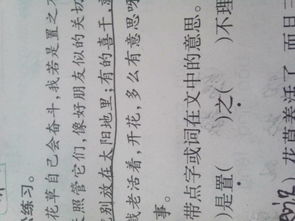 练习。
花草自己会奋斗,我若是置之
照管它们,像好朋友似的关切
别放在太阳地里;有的喜干
老活着,开花,多么有意思呀
事。
带点字或词在文中的意思。
)是置( )之( )不理
)花草养活了 而且